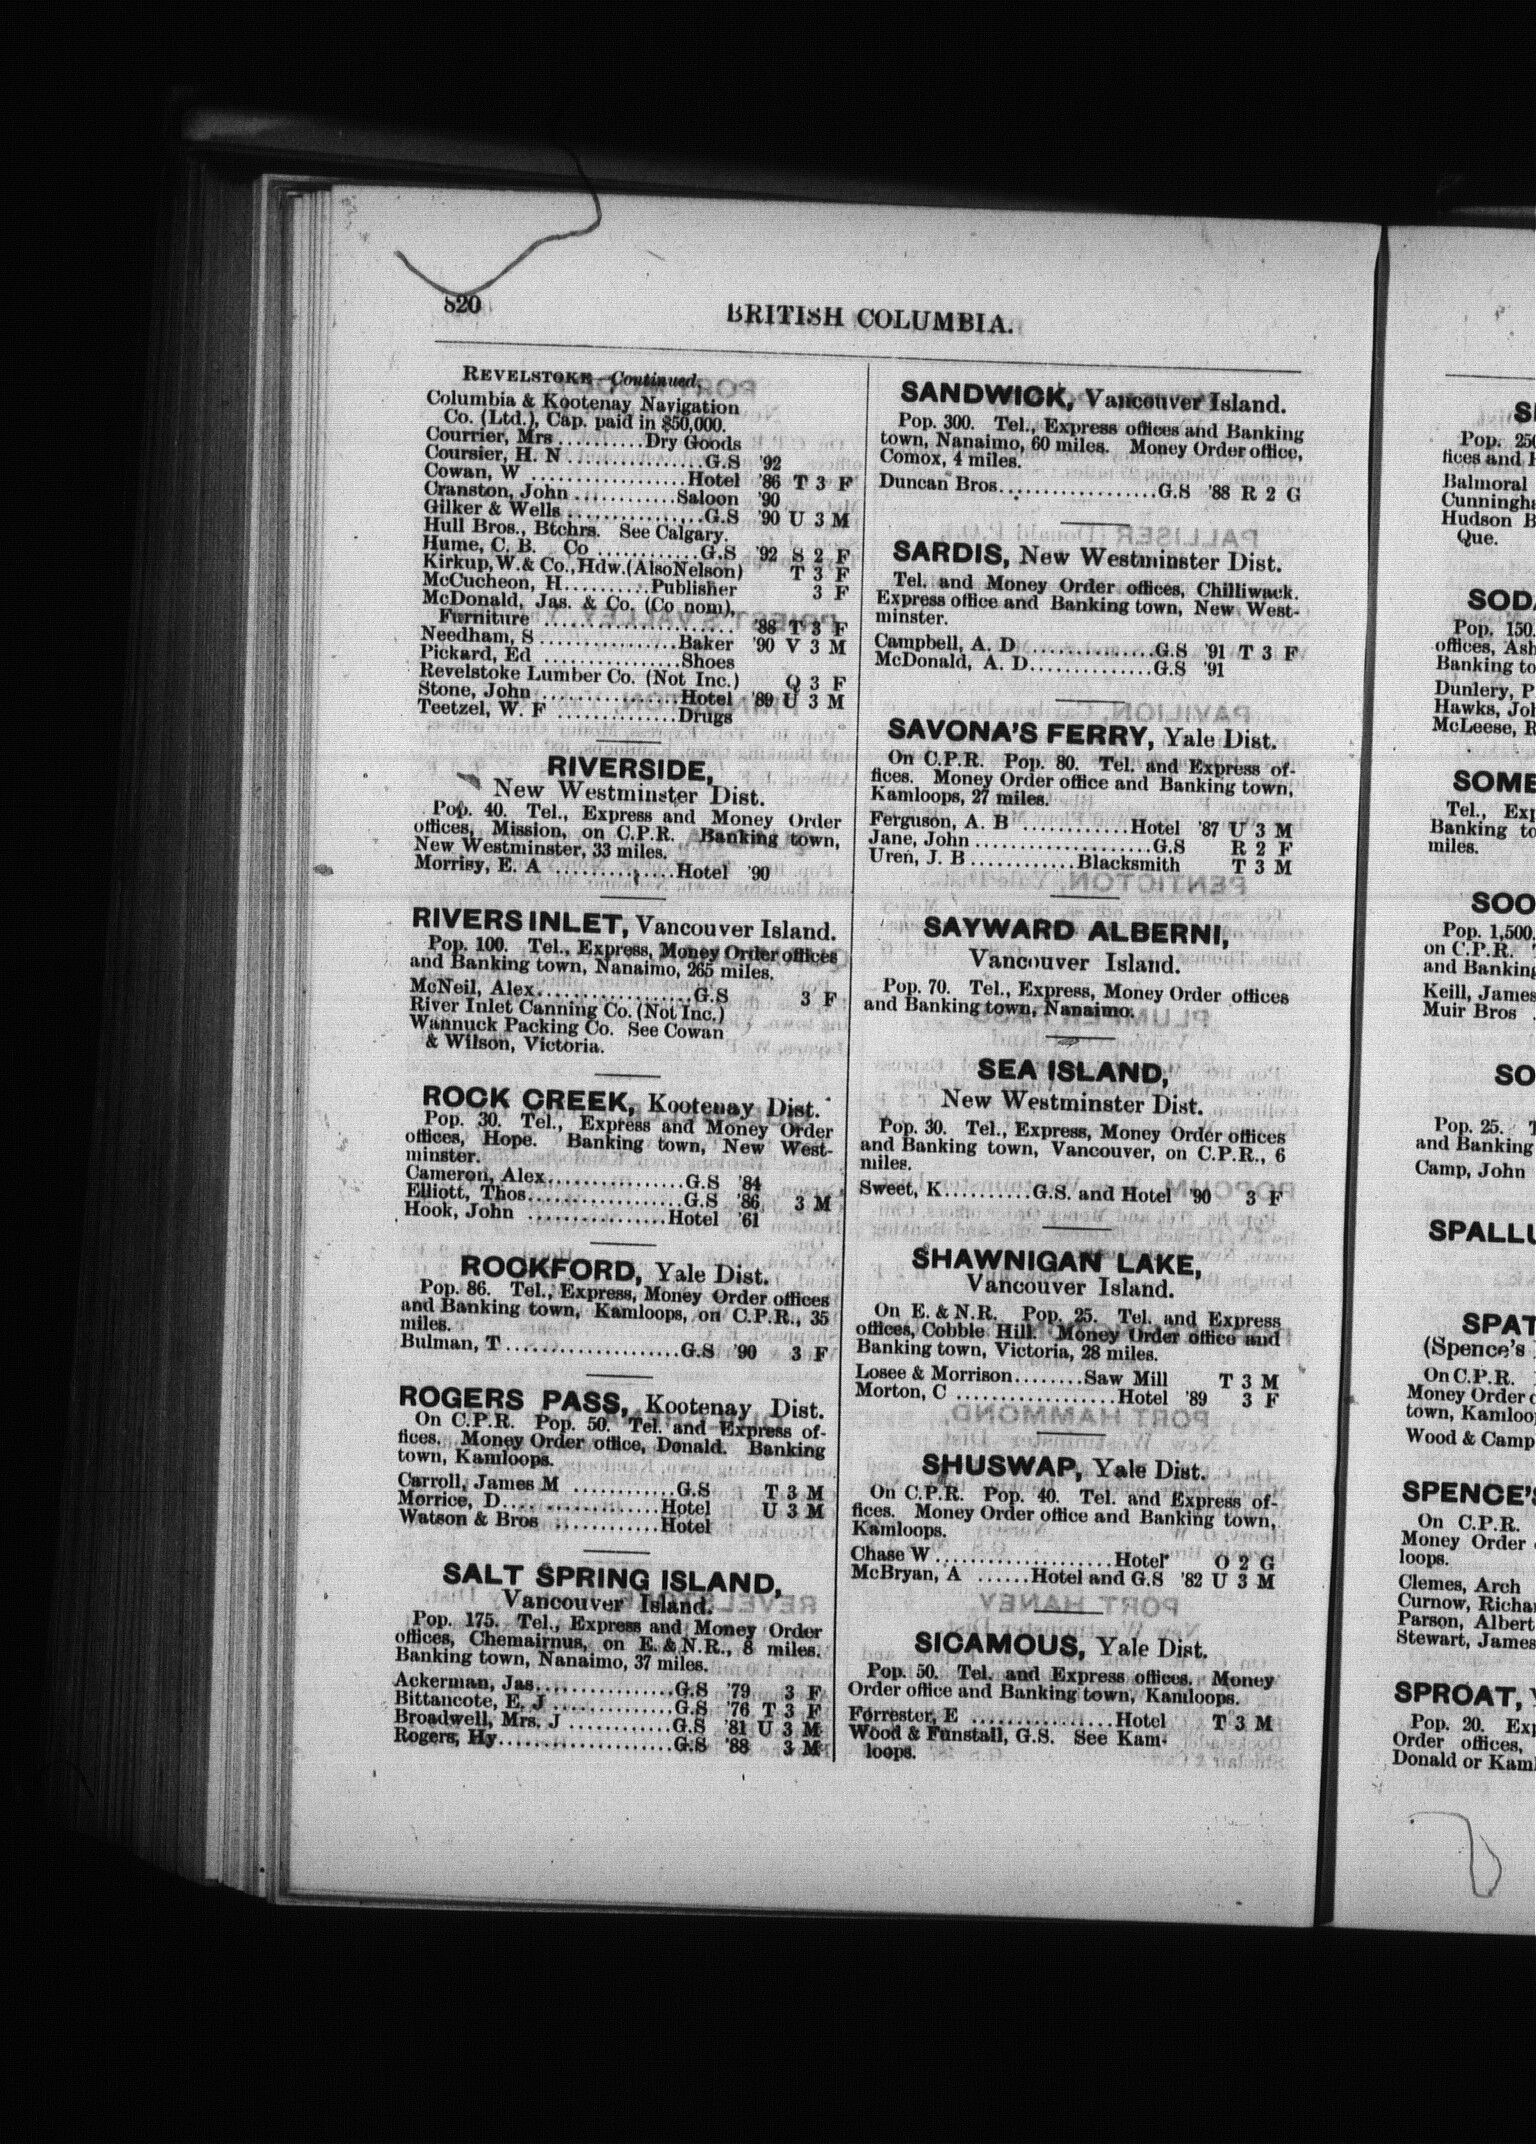 820
BRITISH COLUMBIA.
REVELSTOKE—Continued,
Columbia & Kootenay Navigation
Co. (Ltd.), Cap. paid in $50,000.
Courrier, Mrs..........Dry Goods
Coursier, H. N...............G.S '92
Cowan, W..................Hotel '86 T 3 F
Cranston, John...........Saloon '90
Gilker & Wells...............G.S '90 U 3 M
Hull Bros., Btchrs. See Calgary.
Hume, C. B. Co............G.S '92 S 2 F
Kirkup, W. & Co., Hdw. (Also Nelson) T 3 F
McCucheon, H.........Publisher 3 F
McDonald, Jas. & Co. (Co nom),
Furniture.................... '88 T 3 F
Needham, S...............Baker '90 V 3 M
Pickard, Ed...............Shoes
Revelstoke Lumber Co. (Not Inc.) Q 3 F
Stone, John...............Hotel '89 U 3 M
Teetzel, W. F.............Drugs
RIVERSIDE,
New Westminster Dist.
Pop. 40. Tel., Express and Money Order
offices, Mission, on C.P.R. Banking town,
New Westminster, 33 miles.
Morrisy, E. A.............Hotel '90
RIVERS INLET, Vancouver Island.
Pop. 100. Tel., Express, Money Order offices
and Banking town, Nanaimo, 265 miles.
McNeil, Alex.................G.S 3 F
River Inlet Canning Co. (Not Inc.)
Wannuck Packing Co. See Cowan
& Wilson, Victoria.
ROCK CREEK, Kootenay Dist.
Pop. 30. Tel., Express and Money Order
offices, Hope. Banking town, New West-
minster.
Cameron, Alex...............G.S '84
Elliott, Thos.................G.S '86 3 M
Hook, John................Hotel '61
ROCKFORD, Yale Dist.
Pop. 86. Tel., Express, Money Order offices
and Banking town, Kamloops, on C.P.R., 35
miles.
Bulman, T...................G.S '90 3 F
ROGERS PASS, Kootenay Dist.
On C.P.R. Pop. 50. Tel. and Express of-
fices. Money Order office, Donald. Banking
town, Kamloops.
Carroll, James M...........G.S T 3 M
Morrice, D.................Hotel U 3 M
Watson & Bros............Hotel
SALT SPRING ISLAND,
Vancouver Island.
Pop. 175. Tel., Express and Money Order
offices, Chemairnus, on E. & N.R., 8 miles.
Banking town, Nanaimo, 37 miles.
Ackerman, Jas...............G.S '79 3 F
Bittancote, E. J.............G.S '76 T 3 F
Broadwell, Mrs. J...........G.S '81 U 3 M
Rogers, Hy...................G.S '88 3 M
SANDWICK, Vancouver Island.
Pop. 300. Tel., Express offices and Banking
town, Nanaimo, 60 miles. Money Order office,
Comox, 4 miles.
Duncan Bros.................G.S '88 R 2 G
SARDIS, New Westminster Dist.
Tel. and Money Order offices, Chilliwack.
Express office and Banking town, New West-
minster.
Campbell, A. D..............G.S '91 T 3 F
McDonald, A. D.............G.S '91
SAVONA'S FERRY, Yale Dist.
On C.P.R. Pop. 80. Tel. and Express of-
fices. Money Order office and Banking town,
Kamloops, 27 miles.
Ferguson, A. B............Hotel '87 U 3 M
Jane, John...................G.S R 2 F
Uren, J. B...........Blacksmith T 3 M
SAYWARD ALBERNI,
Vancouver Island.
Pop. 70. Tel., Express, Money Order offices
and Banking town, Nanaimo.
SEA ISLAND,
New Westminster Dist.
Pop. 30. Tel., Express, Money Order offices
and Banking town, Vancouver, on C.P.R., 6
miles.
Sweet, K..........G.S. and Hotel '90 3 F
SHAWNIGAN LAKE,
Vancouver Island.
On E. & N.R. Pop. 25. Tel. and Express
offices, Cobble Hill. Money Order office and
Banking town, Victoria, 28 miles.
Losee & Morrison........Saw Mill T 3 M
Morton, C..................Hotel '89 3 F
SHUSWAP, Yale Dist.
On C.P.R. Pop. 40. Tel. and Express of-
fices. Money Order office and Banking town,
Kamloops.
Chase W....................Hotel O 2 G
McBryan, A......Hotel and G.S '82 U 3 M
SICAMOUS, Yale Dist.
Pop. 50. Tel. and Express offices. Money
Order office and Banking town, Kamloops.
Forrester, E................Hotel T 3 M
Wood & Funstall, G.S. See Kam-
loops.
Pop. 250
fices and
Balmoral
Hudson B
Que.
Pop. 150.
offices, Ash
Banking to
Dunlery, P
Hawks, Joh
McLeese, R
Tel., Exp
Banking to
miles.
Pop. 1,500.
on C.P.R.
and Banking
Keill, James
Muir Bros
Pop. 25.
and Banking
Camp, John
SPALLU
SPAT
(Spence's
On C.P.R.
Money Order
town, Kamloo
Wood & Camp
SPENCE'S
On C.P.R.
Money Order
loops.
Clemes, Arch
Curnow, Richa
Parson, Albert
Stewart, James
SPROAT,
Pop. 20. Exp
Order offices,
Donald or Kaml